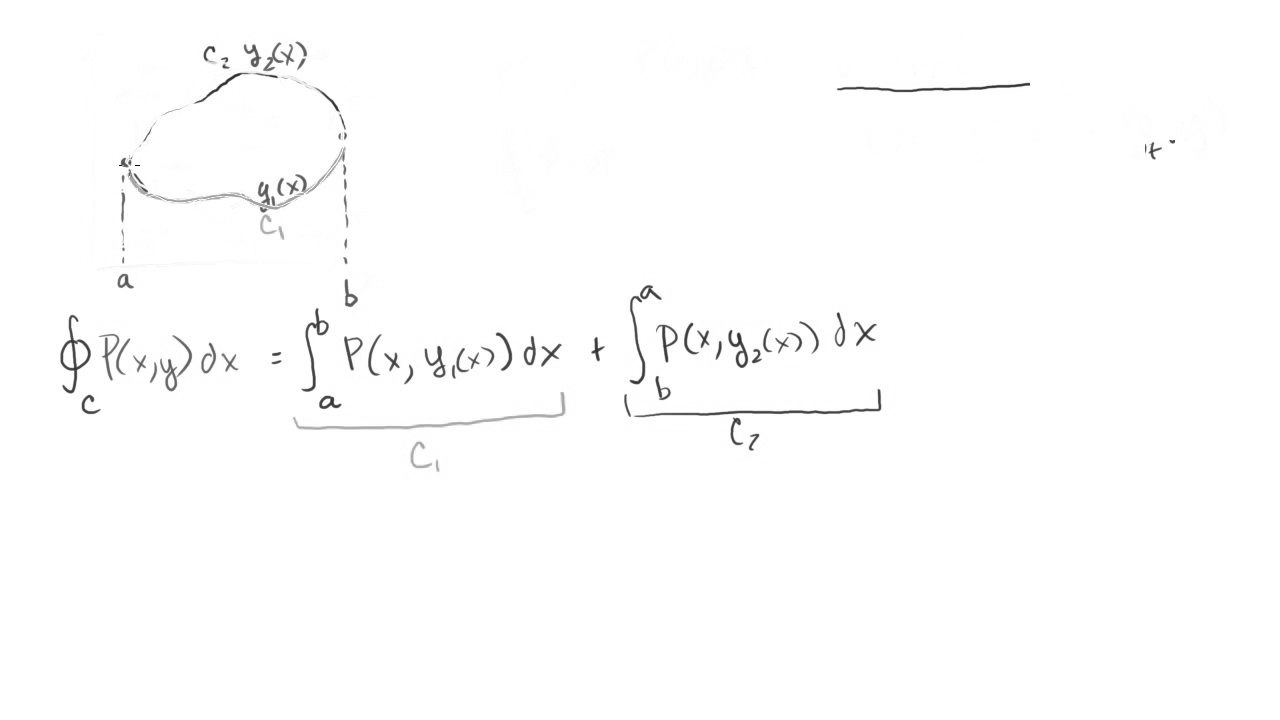 C₂ y₂(x)
y₁(x)
C₁
a
b
∮_C P(x,y) dx = ∫_a^b P(x, y₁(x)) dx + ∫_b^a P(x, y₂(x)) dx
C₁
C₂